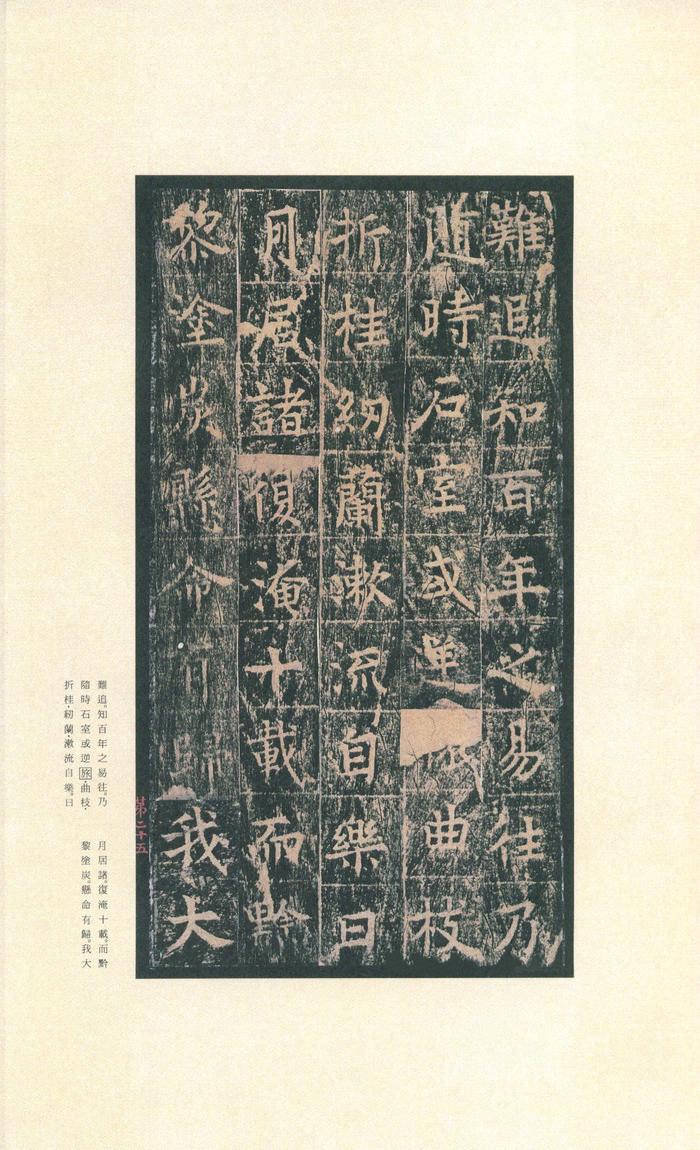 難追知百年之易往乃
随時石室或逆曲枝
折桂紉蘭漱流自樂日
月居諸復淹十載而黔
黎塗炭縣命有歸我大
第二十五
難追。知百年之易往。乃
隨時石室或逆旅。曲枝·
折桂·紉蘭·漱流自樂。日
月居諸。復淹十載。而黔
黎塗炭。懸命有歸。我大